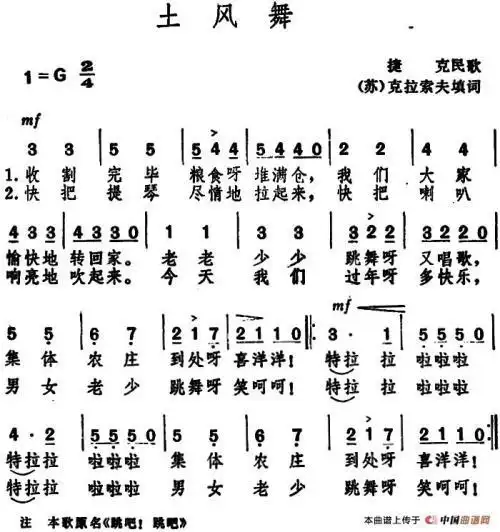 土风舞
1=G 2/4
捷 克民歌
(苏)克拉索夫填词
mf
3 3 5 5 5 4 4 5 4 4 0 2 2 4 4
1. 收 割 完 毕 粮食呀 堆满仓, 我 们 大 家
2. 快 把 提 琴 尽情地 拉起来, 快 把 喇 叭
4 3 3 4 3 3 0 1 1 3 3 3 2 2 3 2 2 0
愉快地 转回家。 老 老 少 少 跳舞呀 又唱歌,
响亮地 吹起来。 今 天 我 们 过年呀 多快乐,
mf
5 5 6 7 2 1 7 2 1 1 0 :| 3 · 1 5 5 5 0
集 体 农 庄 到处呀 喜洋洋! 特拉 拉 啦啦啦
男 女 老 少 跳舞呀 笑呵呵! 特拉 拉 啦啦啦
4 · 2 5 5 5 0 5 5 6 7 2 1 7 2 1 1 0 :|
特拉拉 啦啦啦 集 体 农 庄 到处呀 喜洋洋!
特拉拉 啦啦啦 男 女 老 少 跳舞呀 笑呵呵!
注 本歌原名《跳吧! 跳吧》
本曲谱上传于 中国曲谱网